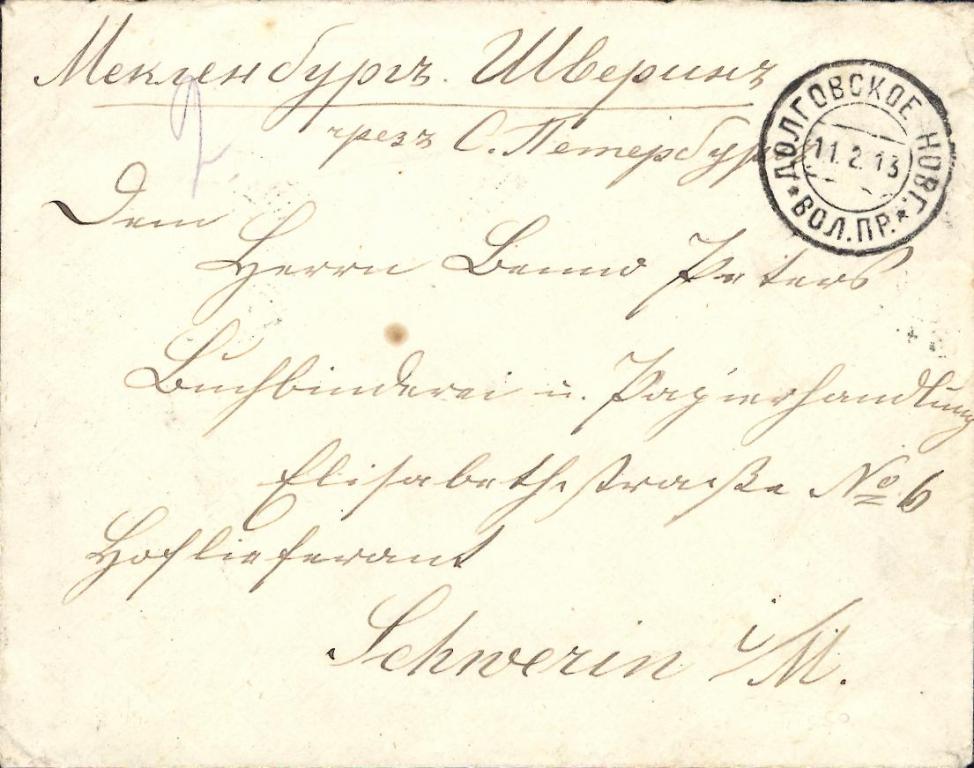 Мекленбургъ. Шверинъ
чрезъ С. Петербур
ДОЛГОВСКОЕ НОВГ.
11.2.13
* ВОЛ.ПР. *
Dem
Herrn Benno Peters
Buchbinderei u. Papierhandlung
Elisabethstraße No 6
Hoflieferant
Schwerin i/M.